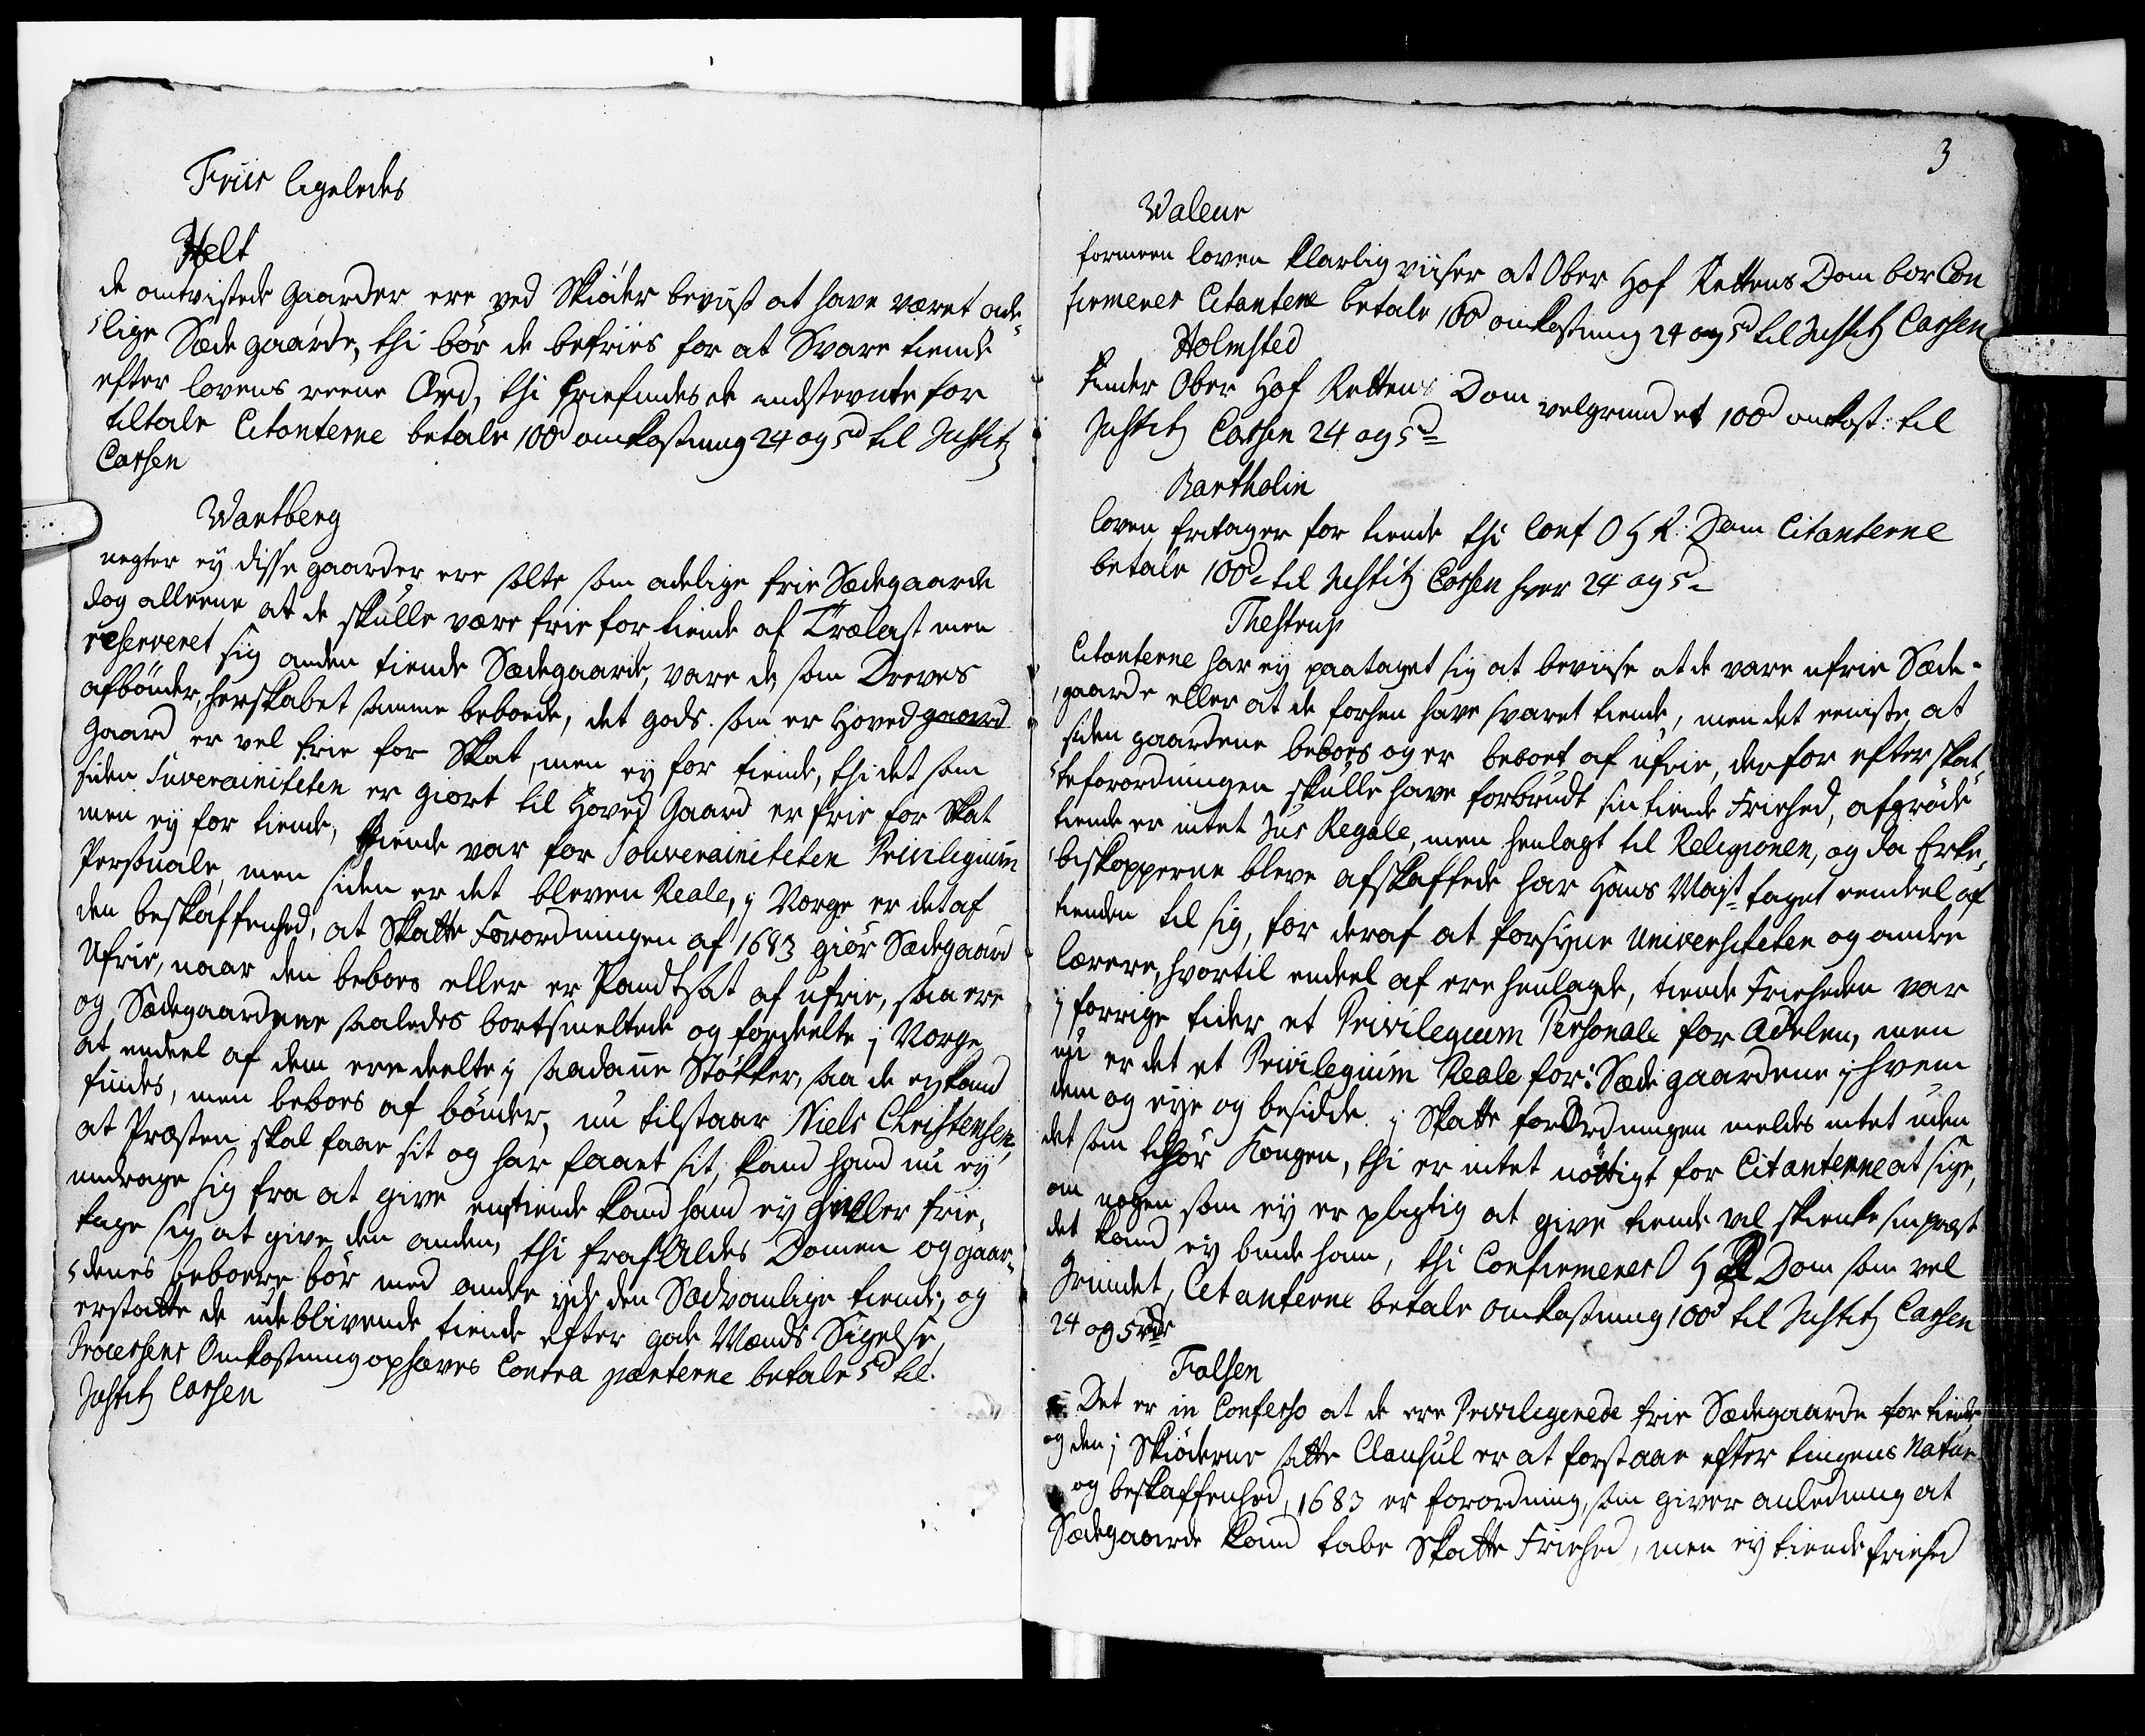 Friis ligeledes
Helt
de omtvistede gaarder ere ved Skiöder beviist at have været ade¬
lige Sæde gaarde, thi bör de befriies for at Svare tiende
efter lovens reene Ord, thi friefindes de indstevnte for
tiltale Citanterne betale 100d omkostning 24 og 5d til Justitz
Cassen
Wartberg
negter ey disse gaarder ere solte som adelige frie Sædegaarde
dog alleene at de skulle være frie for tiende af Trælast men
reserveret sig anden tiende Sædegaarde, vare de som Dreves
af bönder, herskabet samme beboede, det gods som er Hoved gaard
Gaard er vel frie for Skat, men ey for tiende, thi det som
siden Suverainiteten er giort til Hoved Gaard er frie for Skat
men ey for tiende, tiende var for Souverainiteten Privilegium
Personale, men siden er det bleven Reale, j Norge er det af
den beskaffenhed, at Skatte Forordningen af 1683 giör Sædegaard
Ufrie, naar den beboes eller er Pandtsat af ufrie, saa ere
og Sædegaardene saaledes bortsmeltede og fordeelte j Norge
at endeel af dem ere deelte j saadanne Stökker, saa de ey kand
findes, men beboes af bönder, nu tilstaar Niels Christensen,
at Præsten skal faae sit og har faaet sit, kand hand nu ey
undrage sig fra at give en tiende kand hand ey heller frie¬
tage sig at give den anden, thi frafaldes Domen og gaar¬
denes beboere bör med andre yde den Sædvanlige tiende, og
erstatte de udeblivende tiende efter gode Mænds Sigelse,
Processens Omkostning ophæves Contra parterne betale 5d til
Justitz Cassen
3
Waleur
formeen loven klarlig viiser at Ober Hof Rettens Dom bor Con
firmeres Citanterne betale 100d omkostning 24 og 5d til Justitz Cassen
Holmsted
kinder Ober Hof Rettens Dom velgrundet 100d omkost: til
Justitz Cassen 24 og 5d
Bartholin
loven fritager for tiende thi Conf O H R: Dom Citanterne
betale 100d til Justitz Cassen hver 24 og 5d
Thestrup
Citanterne har ey paataget sig at beviise at de vare ufrie Sæde¬
gaarde eller at de forhen have svaret tiende, men det eeniste at
siden gaardene beboes og er beboet af ufrie, derfor efter skat¬
teforordningen skulle have forbrudt sin tiende Friehed, afgröde
tiende er intet Jus Regale, men henlagt til Religionen, og da Erke¬
biskopperne bleve afskaffede har Hans Mayst taget eendeel af
tienden til sig, for deraf at forsyne Universiteten og andre
lærere, hvortil endeel af ere henlagde, tiende Frieheden var
j forrige tider et Privilegium Personale for Adelen, men
nu er det et Privilegium Reale for Sæde gaardene j hvem
dem og eye og besidde. j Skatte forOrdningen meldes intet uden
det som tilhör Kongen, thi er intet nöttigt for Citanterne at sige,
om nogen som ey er pligtig at give tiende vil skienke sin præst
det kand ey binde ham, thi Confirmeres O H R Dom som vel
grundet, Citanterne betale omkostning 100d til Justitz Cassen
24 og 5 rdr
Falsen
Det er in Confesso at de ere Privilegerede frie Sædegaarde for tiende
og den j Skiöderne satte Clausul er at forstaae efter tingens Natur
og beskaffenhed, 1683 er forordning, som giver anledning at
Sædegaarde kand tabe Skatte Friehed, men ey tiende friehed